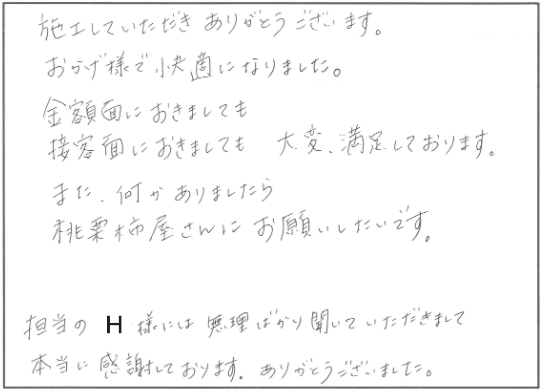 施工していただき ありがとうございます。
おかげ様で快適になりました。
金額面におきましても
接客面におきましても 大変、満足しております。
また、何かありましたら
桃栗柿屋さんに お願いしたいです。
担当の H 様には 無理ばかり聞いていただきまして
本当に感謝しております。ありがとうございました。